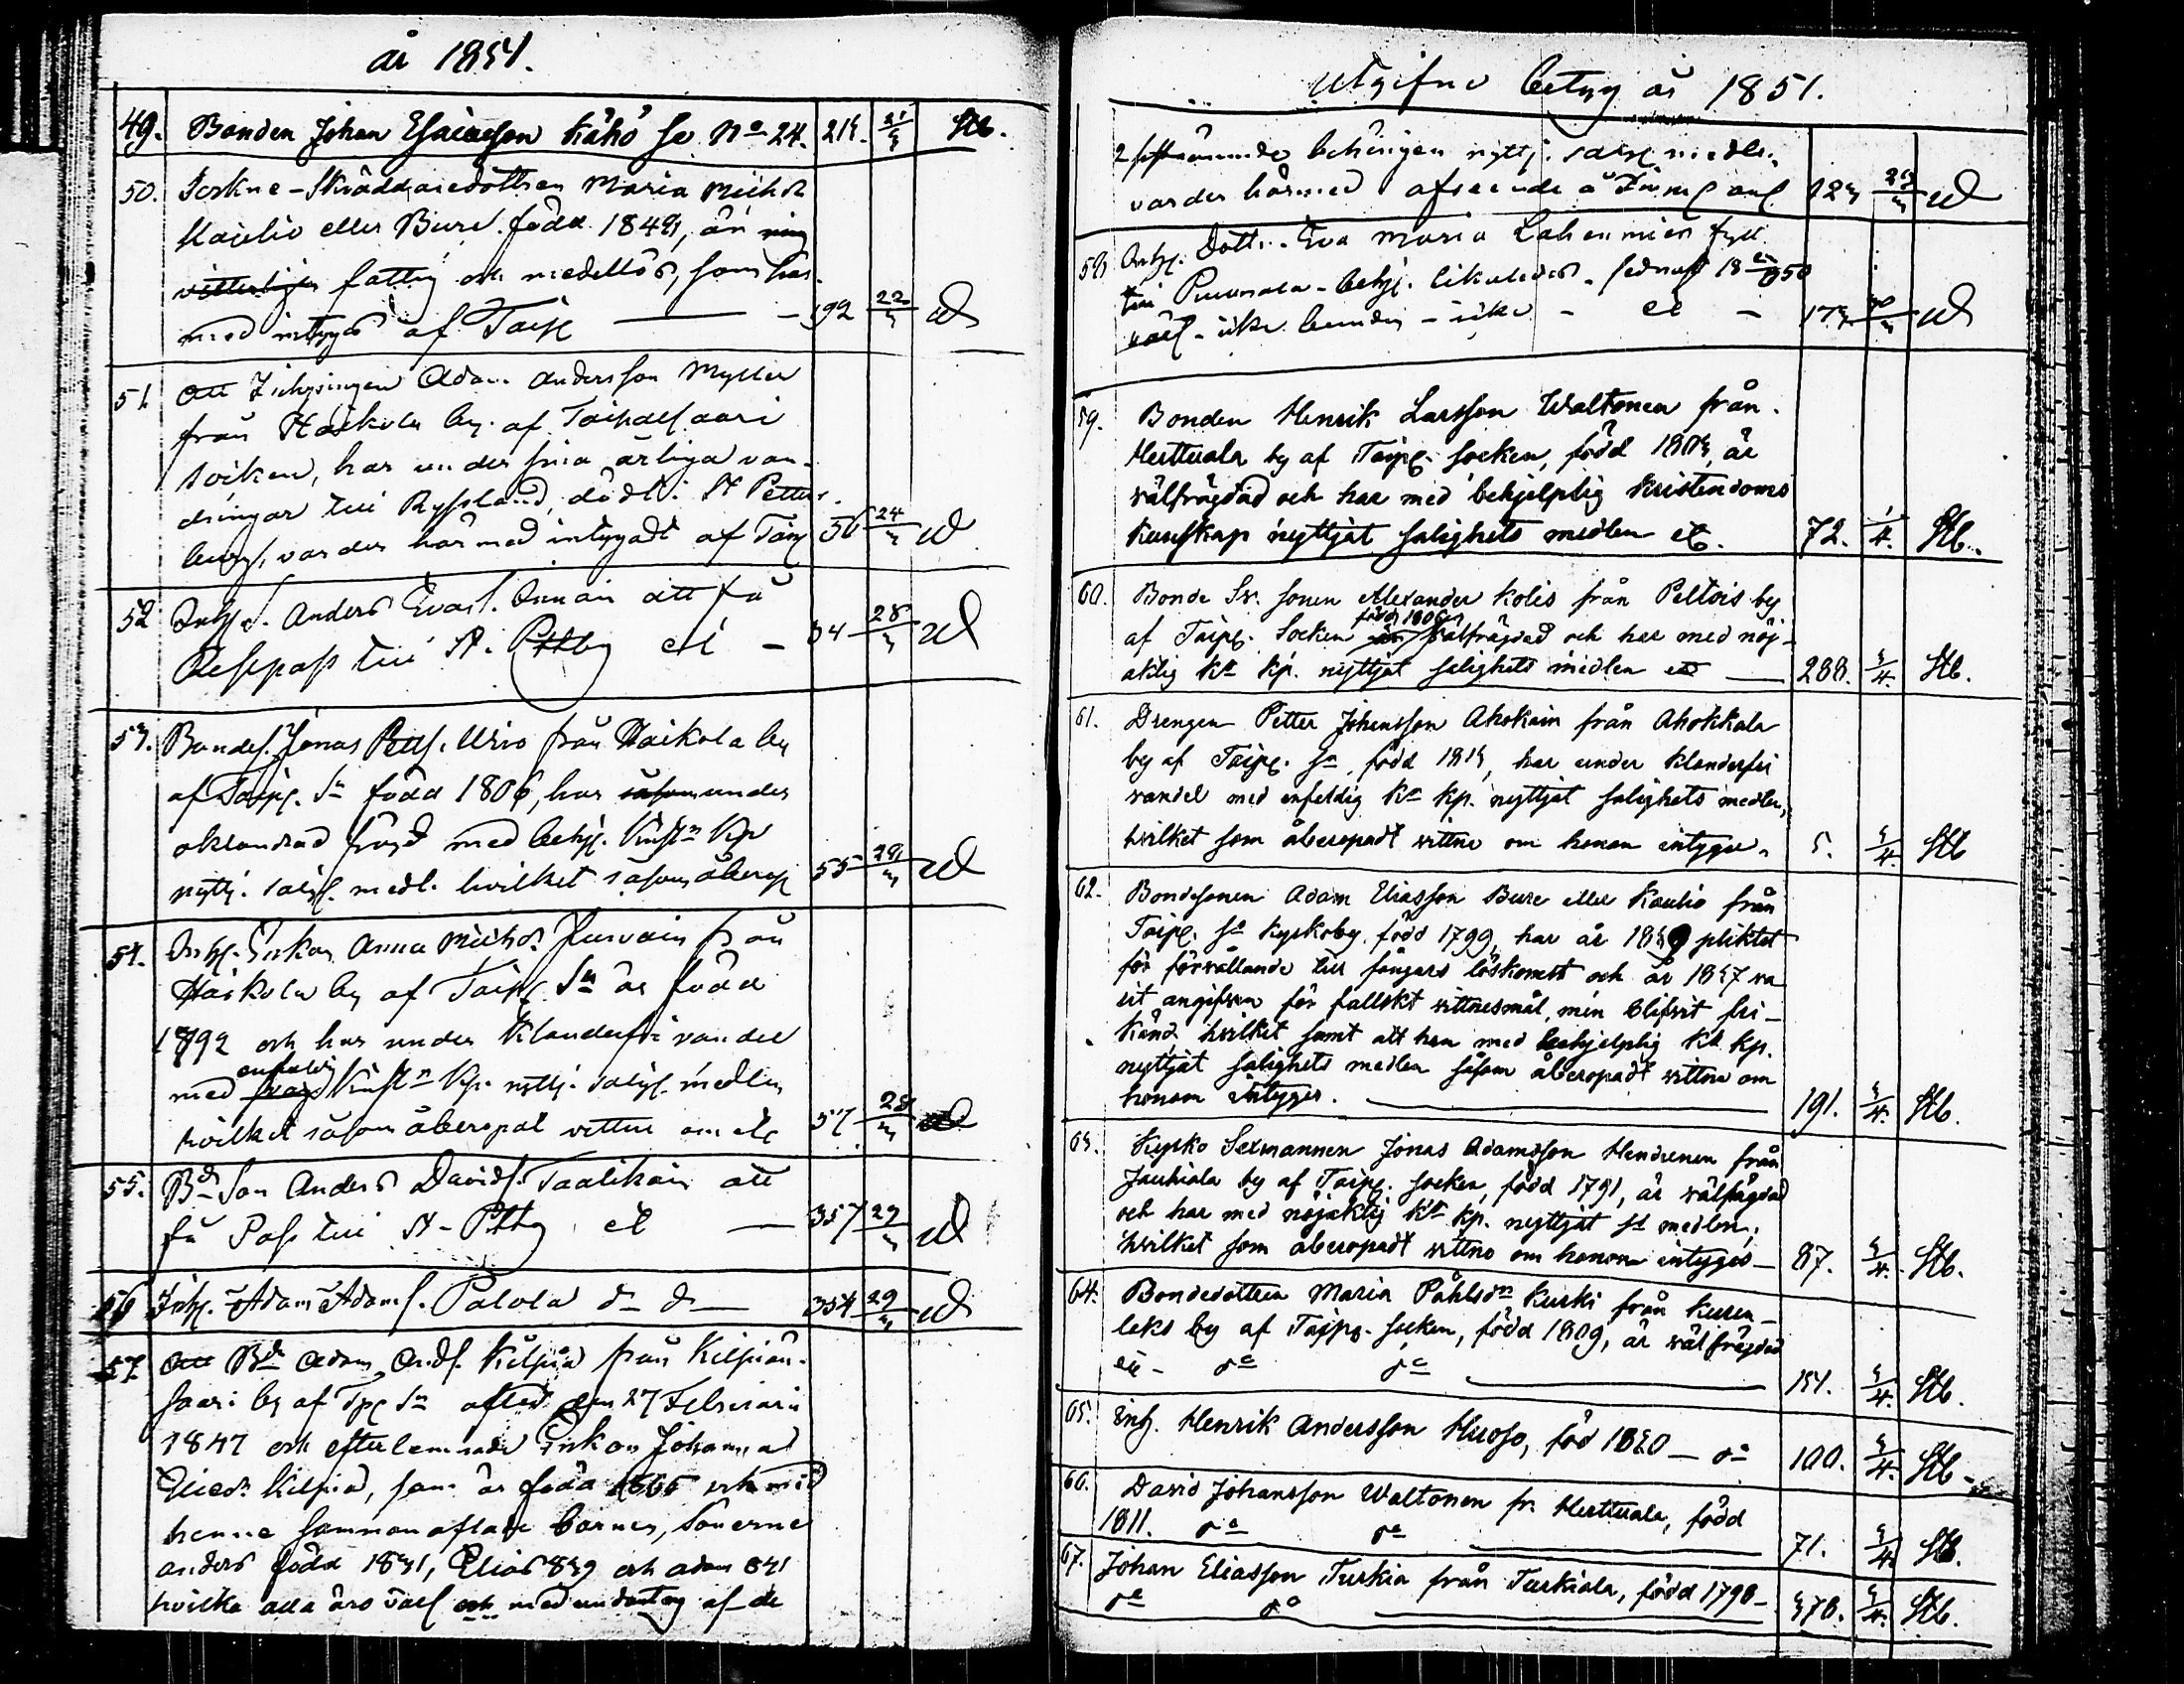 år 1851.
49. Bonden Johan Esaiasson Kähö sc No 24. 214. 21/3 Stb.
50. Torkne-Skräddaredottren Maria Michsdr
eller Bure. född 1849, är
fattig och medellös, som här
med intygas af Taip — 192 22/3
51. Att Inhysingen Adam Andersson Myller
från Haikola by af Taipalsaari
socken, har under sina årliga van-
dringar till Ryssland, dödt i St Petters
burg, varder härmed intygadt af Taip 24/3
52 Inhys. Anders Evas. Onnain att få
Respass till St. Ptbg etc — 34 28/3
53. Bondes. Jonas Petts. Urvo från Haikola by
af Taip. Sn född 1806, har såsom under
oklandrad frägd med behj. Krist:n Kp
nyttj. salighs. medl. hvilket såsom åberop 55 29/3
54. Inhys. Enkan Anna Michsdr från
Haikola by af Taip Sn är född
1792 och har under klanderfri vandel
enfaldig
med Krist:n Kp. nyttj. saligh. medlen
hvilket såsom åberopat vittne om etc 57 28/3
55. Bd Son Anders Davids. Taalikain att
få Pass till St-Ptbg etc — 357 29/3
56 Inhys. Adam Adams. Palola do do — 354 29/3
57. Att Bd Adam Ands. Kilpiä från Kilpiän-
saari by af Tpl Sn afled den 27 Februarii
1847 och efterlemnade Enkan Johanna
Eliedr Kilpiä, som är född och med
henne sammanaflade barnen, Sönerne
Anders född 1831, Elias 839 och Adam 841
hvilka alla äro välf och med undantag af de
Utgifne betyg år 1851.
2 sistnämnde behörigen nyttj. saligh medlen
varder härmed afseende å 29/3
58 Inhys. Dott. Eva Maria Lahenmien
till Pummala - behj. likaledes. sednast 850
välf - icke bunden - icke - etc —
59. Bonden Henrik Larsson Waltonen från
Herttuala by af Taip. socken, född 1803, är
välfrägdad och har med behjelplig Kristendoms
kunskap nyttjat salighets medlen etc. 72. 1/4. Stb.
60. Bonde Sv. sonen Alexander Kolis från Peltois by
född 1806
af Taip. Socken är välfrägdad och har med nöj-
aktig Kr Kp. nyttjat salighets medlen etc — 288. 3/4. Stb.
61. Drengen Petter Johansson Ahokain från Ahokkala
by af Taip. Sn, född 1813, har under klanderfri
vandel med enfaldig Kr Kp. nyttjat salighets medlen,
hvilket som åberopadt vittne om honom intygar. 5. 3/4. Stb
62. Bondesonen Adam Eliasson Bure eller Kaulio från
Taip. Sn Kyrkoby, född 1799, har år pliktat
för förvållande till fångars löskomst och år 1837 va
rit angifven för falskt vittnesmål, men blifvit fri-
känd, hvilket samt att han med behjelplig Kr kp.
nyttjat salighets medlen såsom åberopadt vittne om
honom intygas. — 191. 3/4. Stb.
63. Kyrko Sexmannen Jonas Adamsson Hendunen från
Jauhiala by af Taip. socken, född 1791, är välfrägdad
och har med nöjaktig Kr Kp. nyttjat sl medlen;
hvilket som åberopadt vittne om honom intygas — 87. 3/4. Stb.
64. Bondedottren Maria Påhlsdr Kurki från Kuren-
laks by af Taip. socken, född 1809, är välfrägdad
etc - do do — 154. 3/4. Stb.
65. Inh. Henrik Andersson Huoso, föd 1820 — do 100. 3/4. Stb.
66. David Johansson Waltonen fr. Herttuala, född
1811. do do — 71. 3/4. Stb.
67. Johan Eliasson Turkia från Turkiala, född 1798 —
do do — 378. 3/4. Stb.